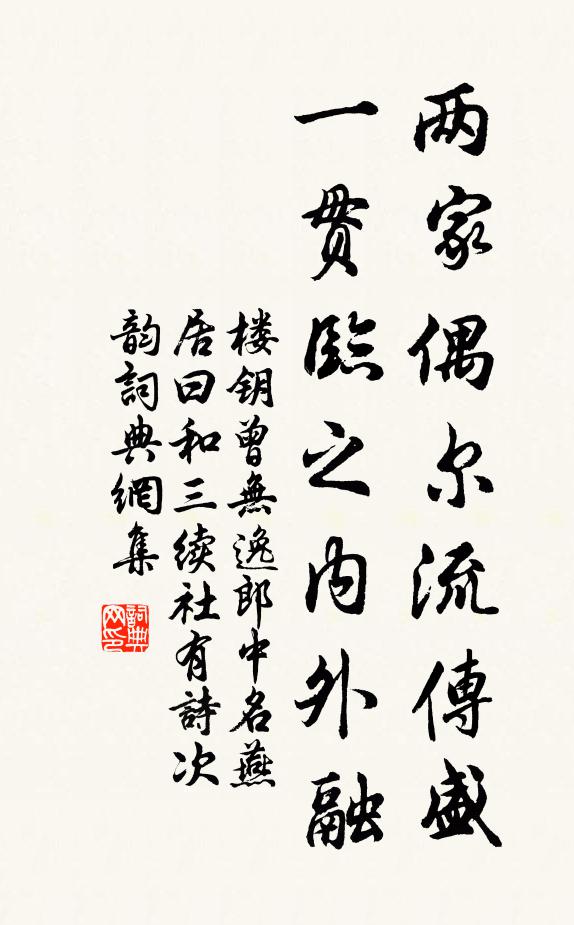 两家偶尔流傳盛
一贯臨之内外融
楼钥曾無逸郎中名燕
居曰和三续社有詩次
韵詞典網集
詞典网印